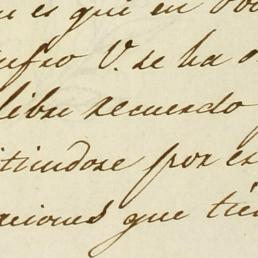 es que en
V. se ha
libre recuerdo
itiendose por es
aciones que tie